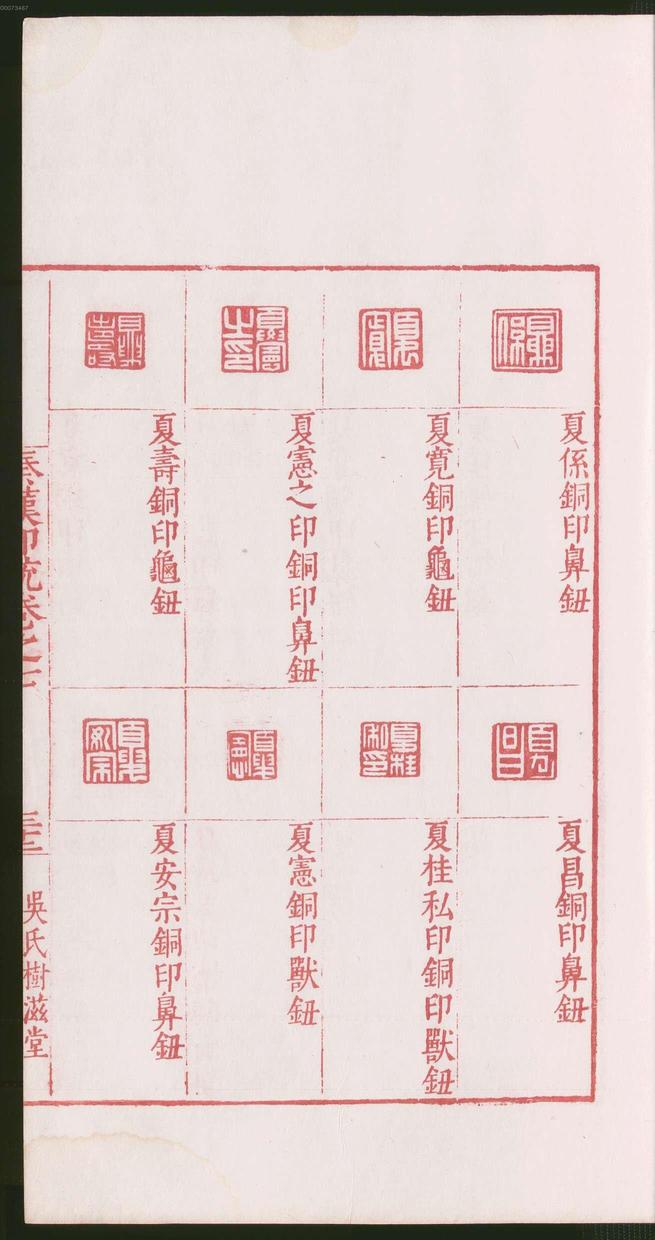 夏係銅印鼻鈕
夏寬銅印龜鈕
夏憲之印銅印鼻鈕
夏壽銅印龜鈕
夏昌銅印鼻鈕
夏桂私印銅印獸鈕
夏憲銅印獸鈕
夏安宗銅印鼻鈕
秦漢印統卷之七
三十二
吳氏樹滋堂
00073467